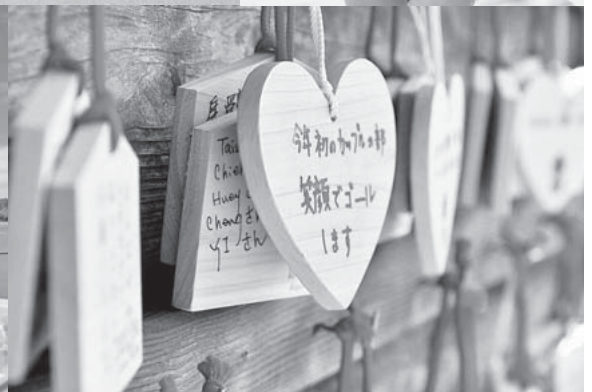 Tai
Chie
Huey
Chengさん
YIさん
今年初のカップルの部
笑顔でゴール
します